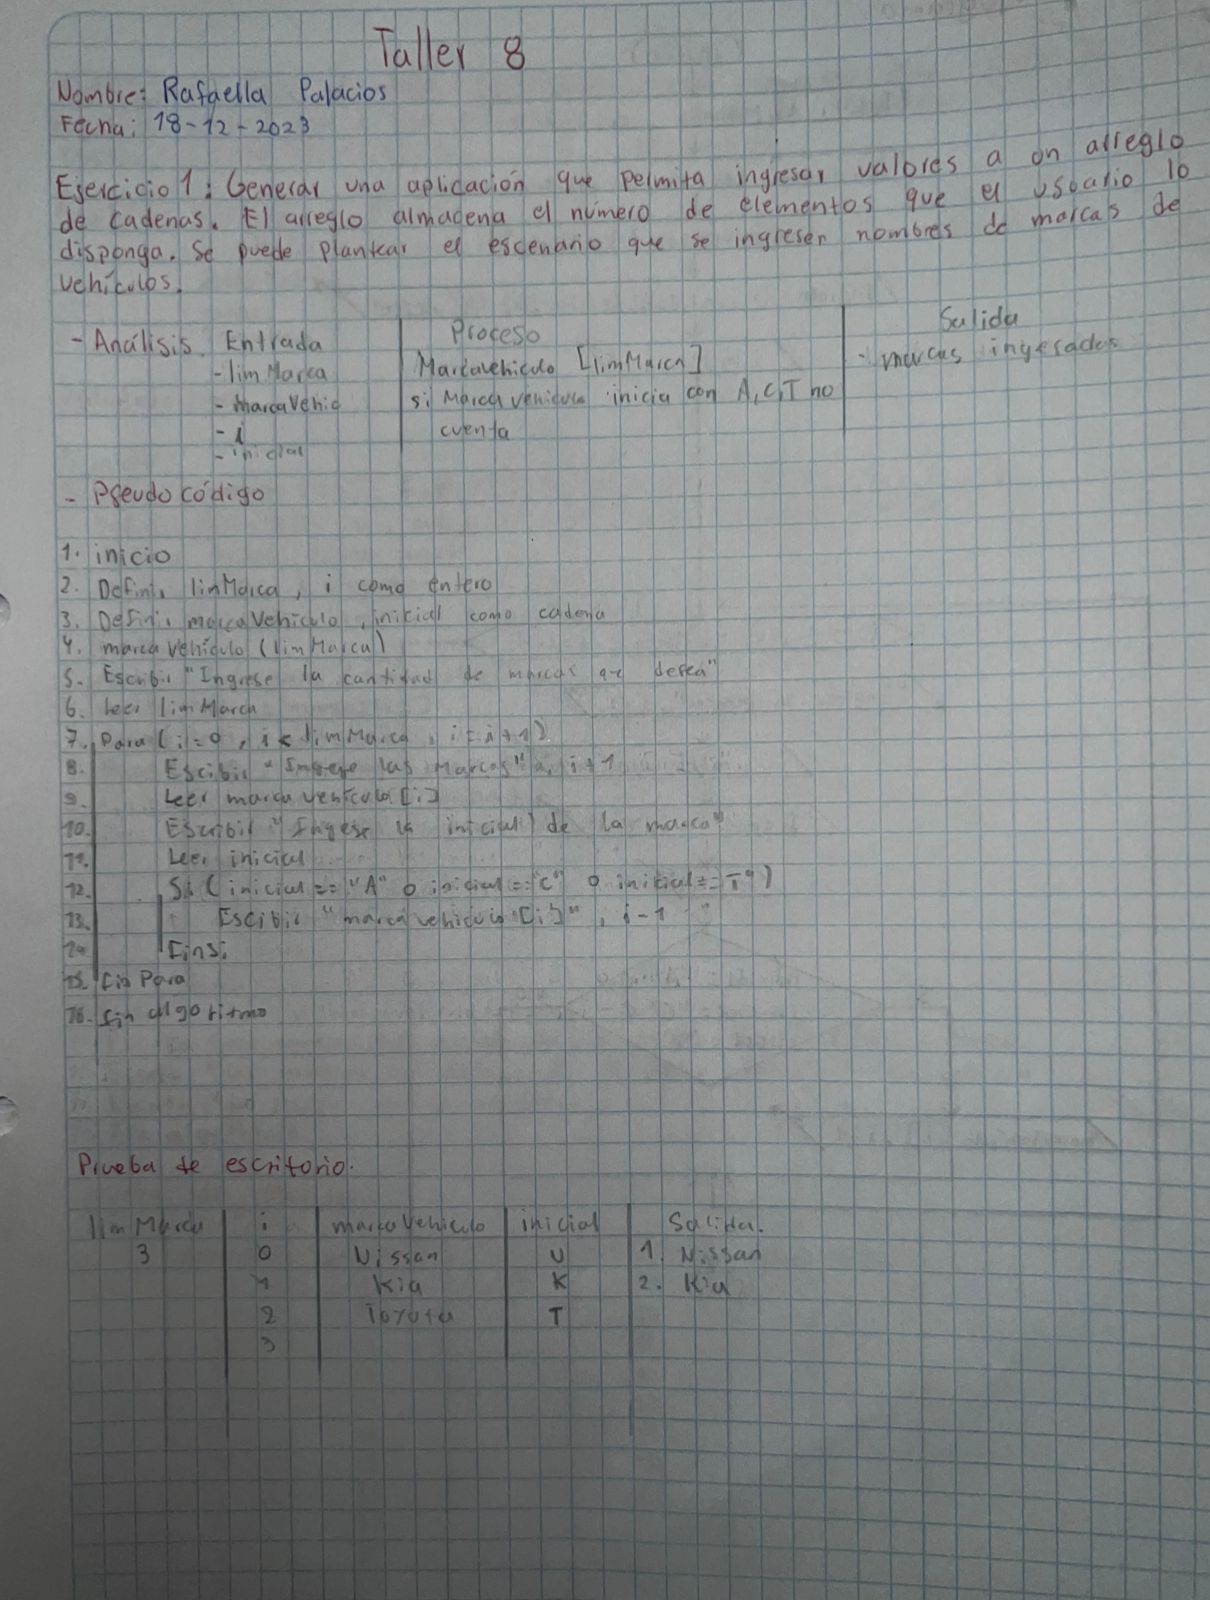 Taller 8
Nombre: Rafaella Palacios
Fecha: 18-12-2023
Ejercicio 1: Generar una aplicación que permita ingresar valores a un arreglo
de cadenas. El arreglo almacena el número de elementos que el usuario lo
disponga. Se puede plantear el escenario que se ingresen nombres de marcas de
vehículos.
- Análisis Entrada Proceso Salida
- lim Marca Marcavehiculo [limMarca] - marcas ingresadas
- marcaVehic si Marca vehiculo inicia con A, C, T no
- i cuenta
- inicial
- Pseudo código
1. inicio
2. Definir limMarca, i como entero
3. Definir marcaVehiculo, inicial como cadena
4. marca vehículo (limMarca)
5. Escribir "Ingrese la cantidad de marcas que desea"
6. Leer lim Marca
7. Para (i=0, i< limMarca, i=i+1)
8. Escibir "Ingrese las Marcas" i+1
9. Leer marca vehiculo [i]
10. Escribir "Ingese la inicial de la marca"
11. Leer inicial
12. Si (inicial == "A" o inicial == "C" o inicial == "T")
13. Escibir "marca vehiculo [i]", i-1
14. Finsi
15. Fin Para
16. fin algoritmo
Prueba de escritorio.
lim Marca i marca Vehiculo inicial Salida.
3 0 Nissan N 1. Nissan
1 Kia K 2. Kia
2 Toyota T
3